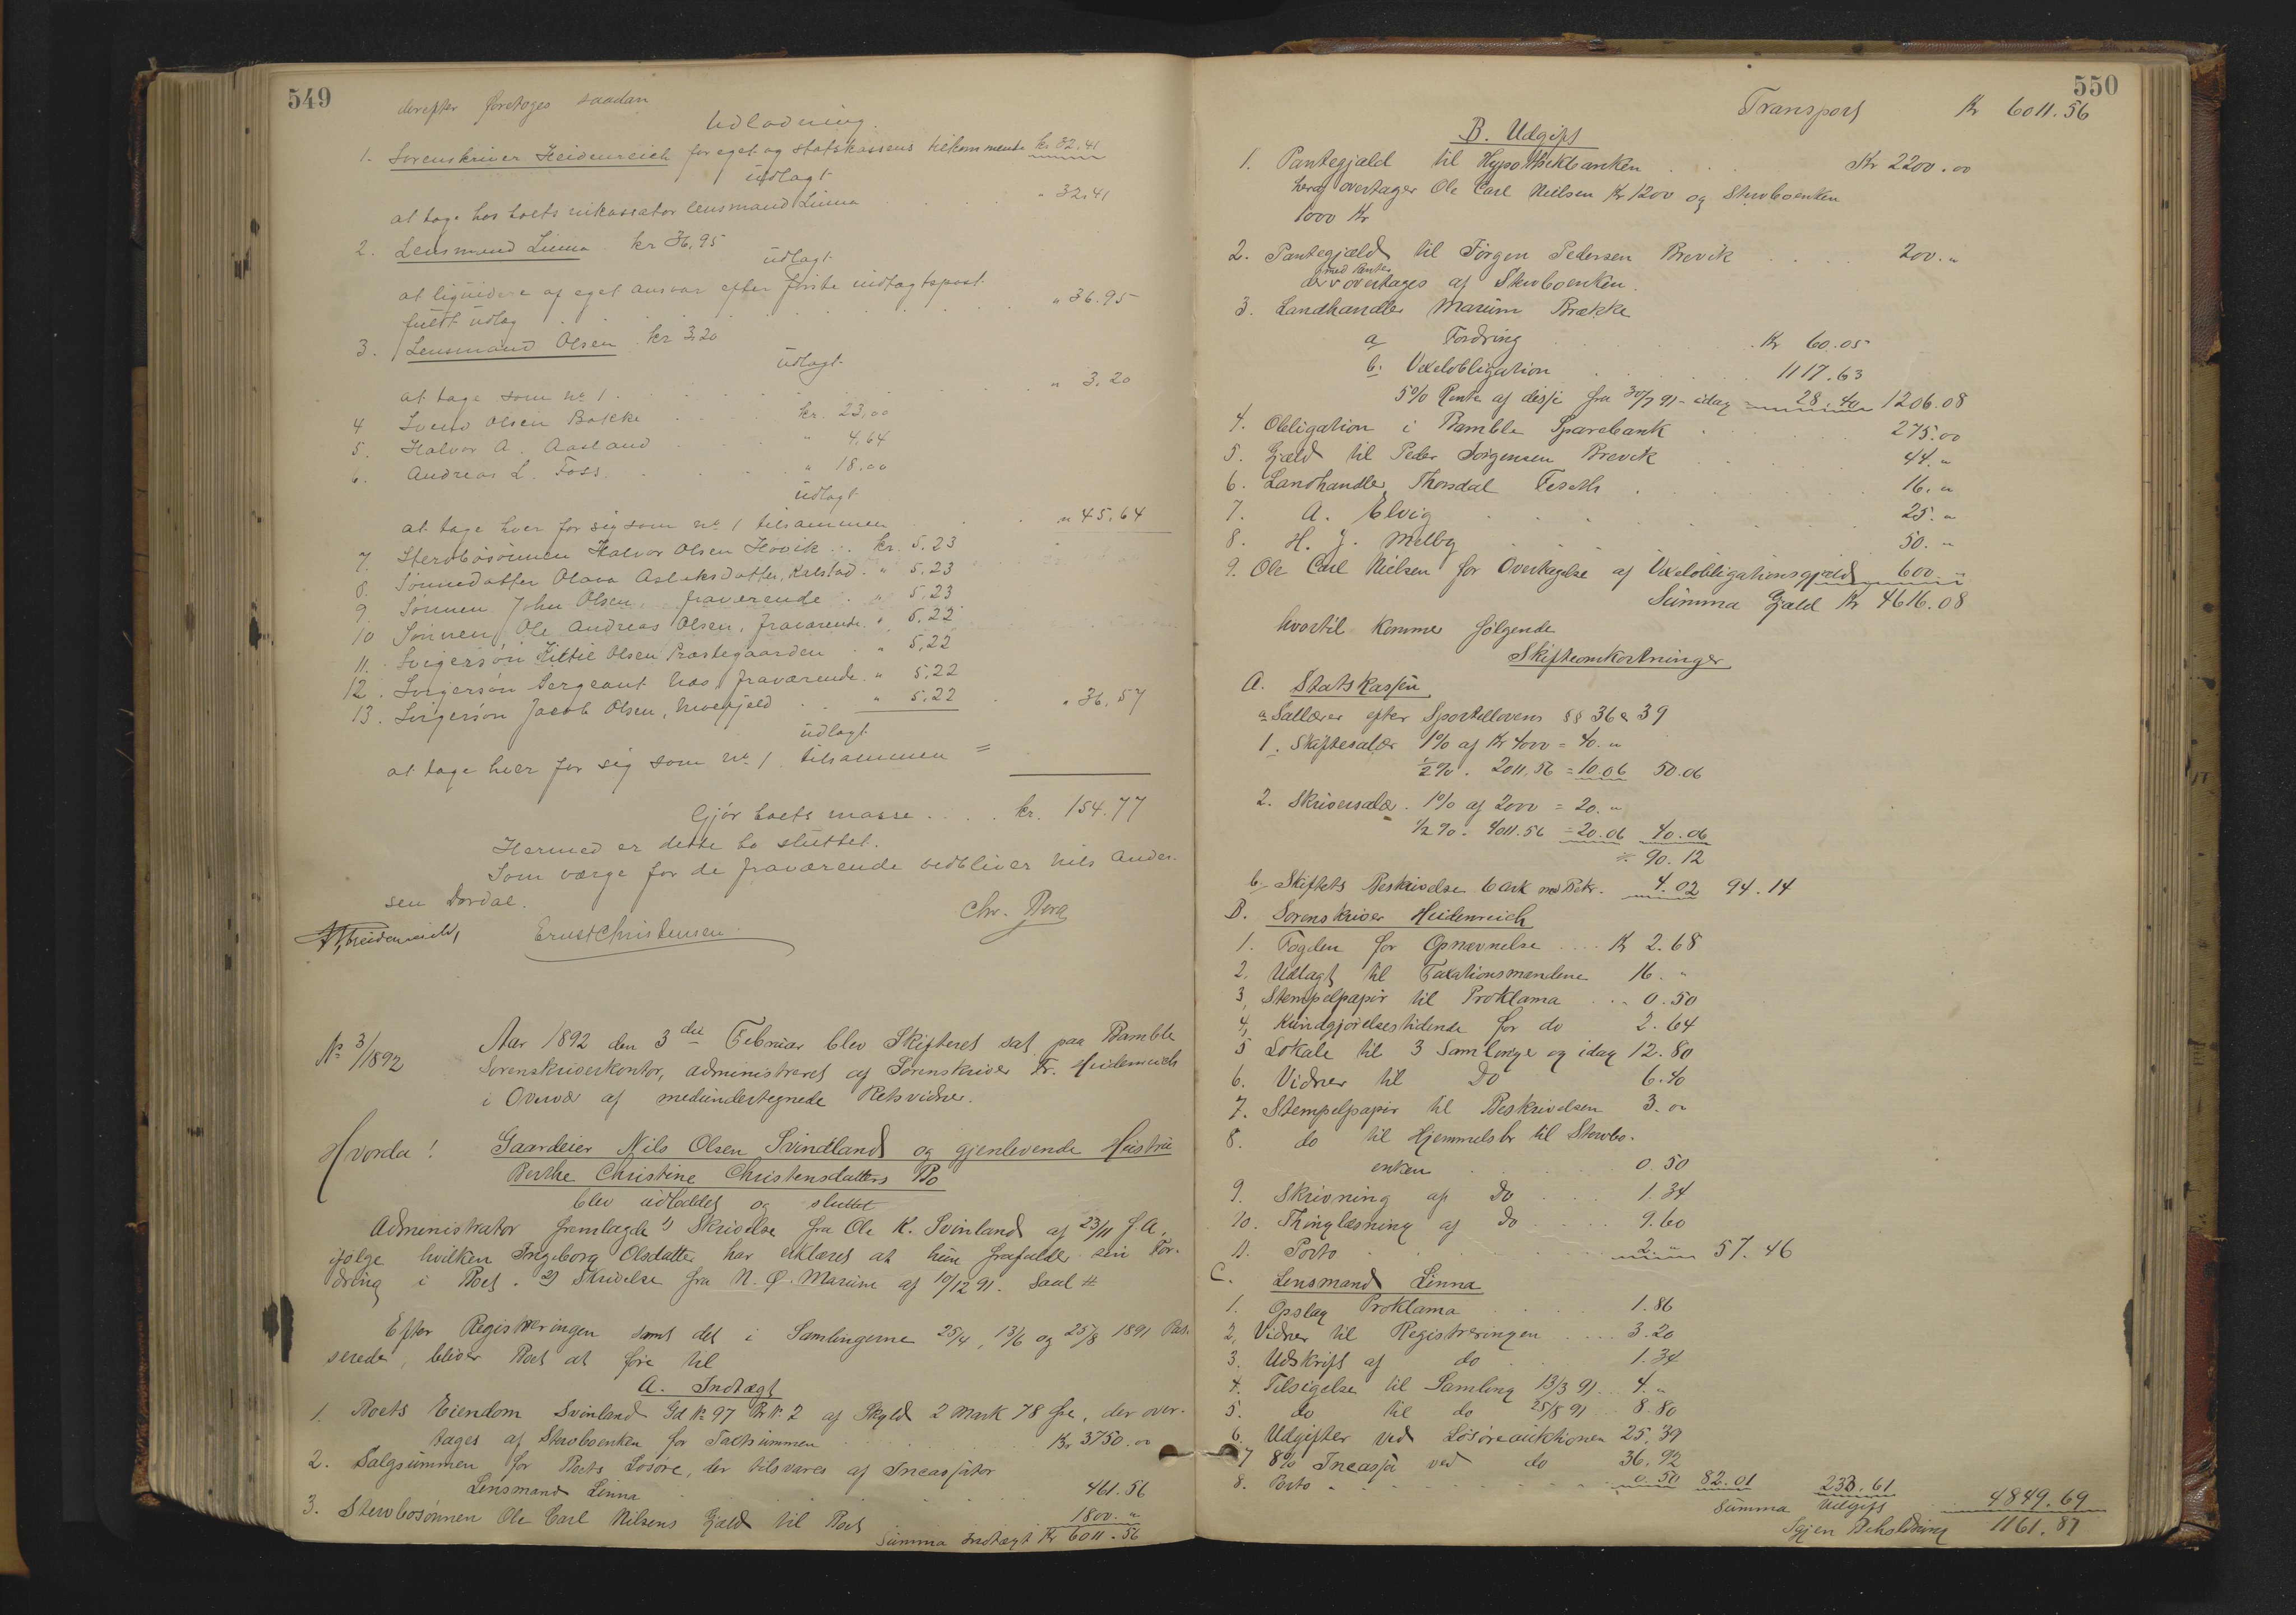 549
derefter foretages saadan
Udlodning.
1. Sorenskriver Heidenreich for eget og statskassens tilkommende kr 32.41
udlagt
at tage hos boets inkassator lensmand Linna . . . . " 32.41
2. Lensmand Linna kr 36,95
udlagt
at liquidere af eget ansvar efter første indtægtspost
fuldt udlæg . . . . " 36.95
3. Lensmand Olsen kr 3,20
udlagt
at tage som no 1 . . . . " 3.20
4 Svend Olsen Bakke kr. 23,00
5. Halvor A. Aasland " 4,64
6. Andreas L. Foss " 18.00
udlagt
at tage hver for sig som no 1 tilsammen " 45,64
7. Stervbosønnen Halvor Olsen Hovik . . kr. 5.23
8. Sønnedatter Olava Aslaksdatter, Kalstad . " 5.23
9 Sønnen John Olsen, fraværende . " 5.23
10 Sønnen Ole Andreas Olsen, fraværende " 5,22
11. Svigersøn Kittil Olsen Præstegaarden . " 5,22
12. Svigersøn Sergeant Aas, fraværende " 5.22
13. Svigersøn Jacob Olsen, . . " 5.22 " 36,57
udlagt
at tage hver for sig som no 1 tilsammen =
Gjør boets masse . . . . kr. 154.77
Hermed er dette bo sluttet.
Som værge for de fraværende vedbliver Nils Ander-
sen Dordal.
Heidenreich, Ernst Christensen. Chr. Berg
No 3/1892
Aar 1892 den 3die Februar blev Skifteret sat paa Bamble
Sorenskriverkontor, administreret af Sorenskriver Fr. Heidenreich
i Overvær af medundertegnede Retsvidner.
Hvorda!
Gaardeier Nils Olsen Svindland og gjenlevende Hustru
Berthe Christine Christensdatters Bo
blev udloddet og sluttet
Administrator fremlagde 1) Skrivelse fra Ole K. Svinland af 23/11 f.A.,
ifølge hvilken Ingeborg Olsdatter har erklæret at hun frafalder sin For-
dring i Boet. 2) Skrivelse fra N. O. Marum af 10/12 91. Saal #
Efter Registreringen samt det i Samlingerne 25/4, 13/6 og 25/8 1891 Pas-
serede, bliver Boet at føre til
A. Indtægt
1. Boets Eiendom Svinland Gd No 97 Br No 2 af Skyld 2 Mark 78 Øre, der over-
tages af Stervboenken for Taxtsummen Kr 3750.00
2. Salgsummen for Boets Løsøre, der tilsvares af Incassator
Lensmand Linna . . . . 461.56
3. Stervbosønnen Ole Carl Nilsens Gjæld til Boet 1800. "
Summa Indtægt Kr 6011.56
550
Transport Kr 6011.56
B. Udgift
1. Pantegjæld til Hypothekbanken . . . Kr 2200.00
heraf overtager Ole Carl Nielsen Kr 1200 og Stervboenken
1000 Kr
2. Pantegjæld til Jørgen Pedersen Brevik . . . . 200. "
med Pantes
der v overtages af Stervboenken.
3. Landhandler Marum Brække
a Fordring . . . . Kr 60.05
b. Vexelobligation . . . . 1117.63
5% Rente af disse fra 30/7 91 - idag 28.40 1206.08
4. Obligation i Bamble Sparebank . . . . 275.00
5. Gjæld til Peder Jørgensen Brevik . . . . 44. "
6. Landhandler Thorsdal Feseth . . . . 16. "
7. A. Elvig . . . . 25. "
8. H. J. Melby . . . . 50. "
9. Ole Carl Nielsen for Overtagelse af Vexelobligationsgjæld 600. "
Summa Gjæld Kr 4616.08
hvortil kommer følgende
Skifteomkostninger
A. Statskassen
a Sallærer efter Sportellovens §§ 36 & 39
1. Skiftesalær 1% af Kr 4000 = 40. "
1/2%. 2011.56 = 10.06 50.06
2. Skriversalær. 1% af 2000 = 20. "
1/2%. 4011.56 = 20.06 40.06
90.12
b. Skiftets Beskrivelse 6 ark med Bekr. 4.02 94.14
B. Sorenskriver Heidenreich
1. Fogden for Opnævnelse . . . . Kr 2.68
2. Udlagt til Taxationsmændene 16. "
3, Stempelpapir til Proklama . . . 0.50
4, Kundgjørelsestidende for do 2.64
5 Lokale til 3 Samlinger og idag 12.80
6. Vidner til Do 6.40
7. Stempelpapir til Beskrivelsen 3.00
8. do til Hjemmelsbr til Stervbo-
enken 0.50
9. Skrivning af Do . . . . 1.34
10. Thinglæsning af Do . . . . 9.60
11. Porto . . . . 2. " 57.46
C. Lensmand Linna
1. Opslag Proklama . . . . 1.86
2, Vidner til Registreringen . . . . 3.20
3. Udskrift af do . . . 1.34
4. Tilsigelse til Samling 13/3 91 . . 4. "
5. do til do 25/8 91 . . 8.80
6. Udgifter ved Løsøreauktionen 25.39
7 8% Incasso ved do 36.92
8. Porto . . . . 0.50 82.01 233.61
Summa Udgift 4849.69
Igjen Beholdning 1161.87